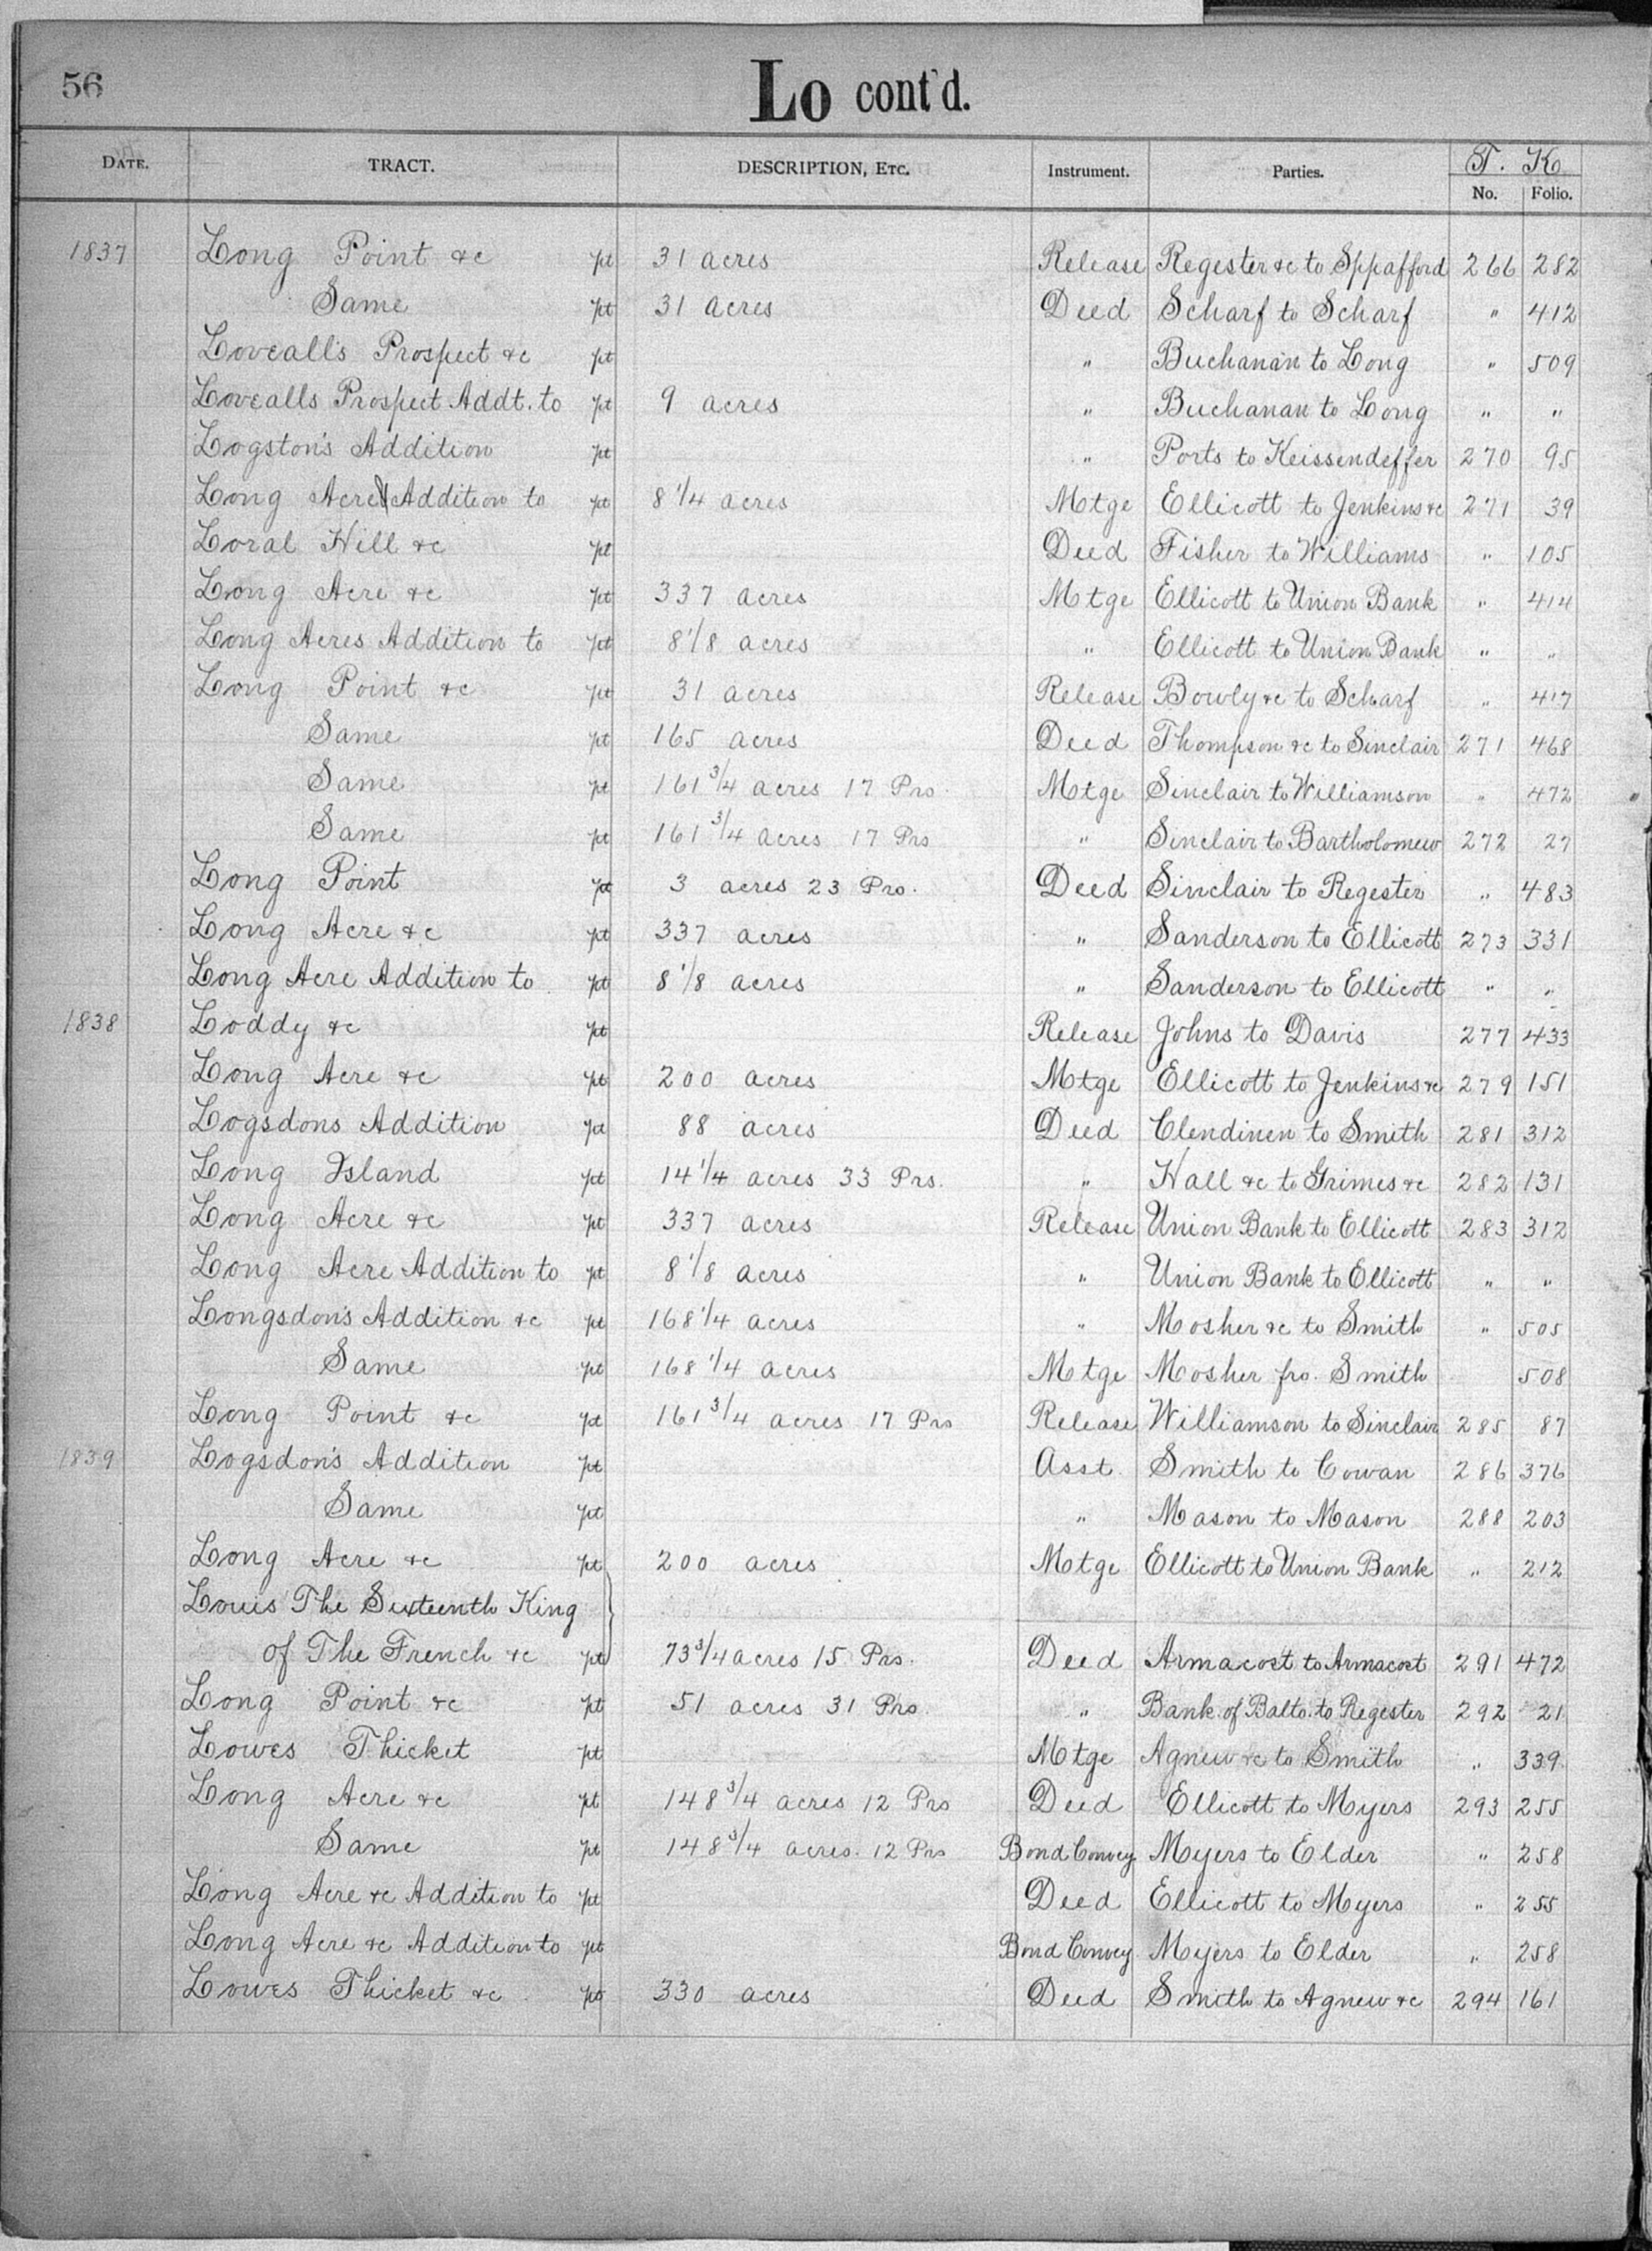 56
Lo cont'd.
DATE. TRACT. DESCRIPTION, ETC. Instrument. Parties. T. K
No. Folio.
1837 Long Point &c pt 31 acres Release Regester &c to Sppafford 266 282
Same pt 31 acres Deed Scharf to Scharf " 412
Lovealls Prospect &c pt " Buchanan to Long " 509
Lovealls Prospect Addt. to pt 9 acres " Buchanan to Long " "
Logston's Addition pt " Ports to Keissendeffer 270 95
Long Acre Addition to pt 8 1/4 acres Motge Ellicott to Jenkins &c 271 39
Loral Hill &c pt Deed Fisher to Williams " 105
Long Acre &c pt 337 acres Motge Ellicott to Union Bank " 414
Long Acres Addition to pt 8 1/8 acres " Ellicott to Union Bank " "
Long Point &c pt 31 acres Release Bowly &c to Scharf " 417
Same pt 165 acres Deed Thompson &c to Sinclair 271 468
Same pt 161 3/4 acres 17 Prs. Motge Sinclair to Williamson " 472
Same pt 161 3/4 acres 17 Prs " Sinclair to Bartholomew 272 27
Long Point pt 3 acres 23 Prs. Deed Sinclair to Regester " 483
Long Acre &c pt 337 acres " Sanderson to Ellicott 273 331
Long Acre Addition to pt 8 1/8 acres " Sanderson to Ellicott " "
1838 Loddy &c pt Release Johns to Davis 277 433
Long Acre &c pt 200 acres Motge Ellicott to Jenkins &c 279 151
Logsdons Addition pt 88 acres Deed Clendinen to Smith 281 312
Long Island pt 14 1/4 acres 33 Prs. " Hall &c to Grimes &c 282 131
Long Acre &c pt 337 acres Release Union Bank to Ellicott 283 312
Long Acre Addition to pt 8 1/8 acres " Union Bank to Ellicott " "
Longsdon's Addition &c pt 168 1/4 acres " Mosher &c to Smith " 505
Same pt 168 1/4 acres Motge Mosher fro. Smith 508
Long Point &c pt 161 3/4 acres 17 Prs Release Williamson to Sinclair 285 87
1839 Logsdon's Addition pt Asst. Smith to Cowan 286 376
Same pt " Mason to Mason 288 203
Long Acre &c pt 200 acres Motge Ellicott to Union Bank " 212
Louis The Sixteenth King
of The French &c pt 73 3/4 acres 15 Prs. Deed Armacost to Armacost 291 472
Long Point &c pt 51 acres 31 Prs. " Bank of Balto. to Regester 292 21
Lowes Thicket pt Motge Agnew &c to Smith " 339
Long Acre &c pt 148 3/4 acres 12 Prs Deed Ellicott to Myers 293 255
Same pt 148 3/4 acres. 12 Prs Bond Convey Myers to Elder " 258
Long Acre &c Addition to pt Deed Ellicott to Myers " 255
Long Acre &c Addition to pt Bond Convey Myers to Elder " 258
Lowes Thicket &c pt 330 acres Deed Smith to Agnew &c 294 161